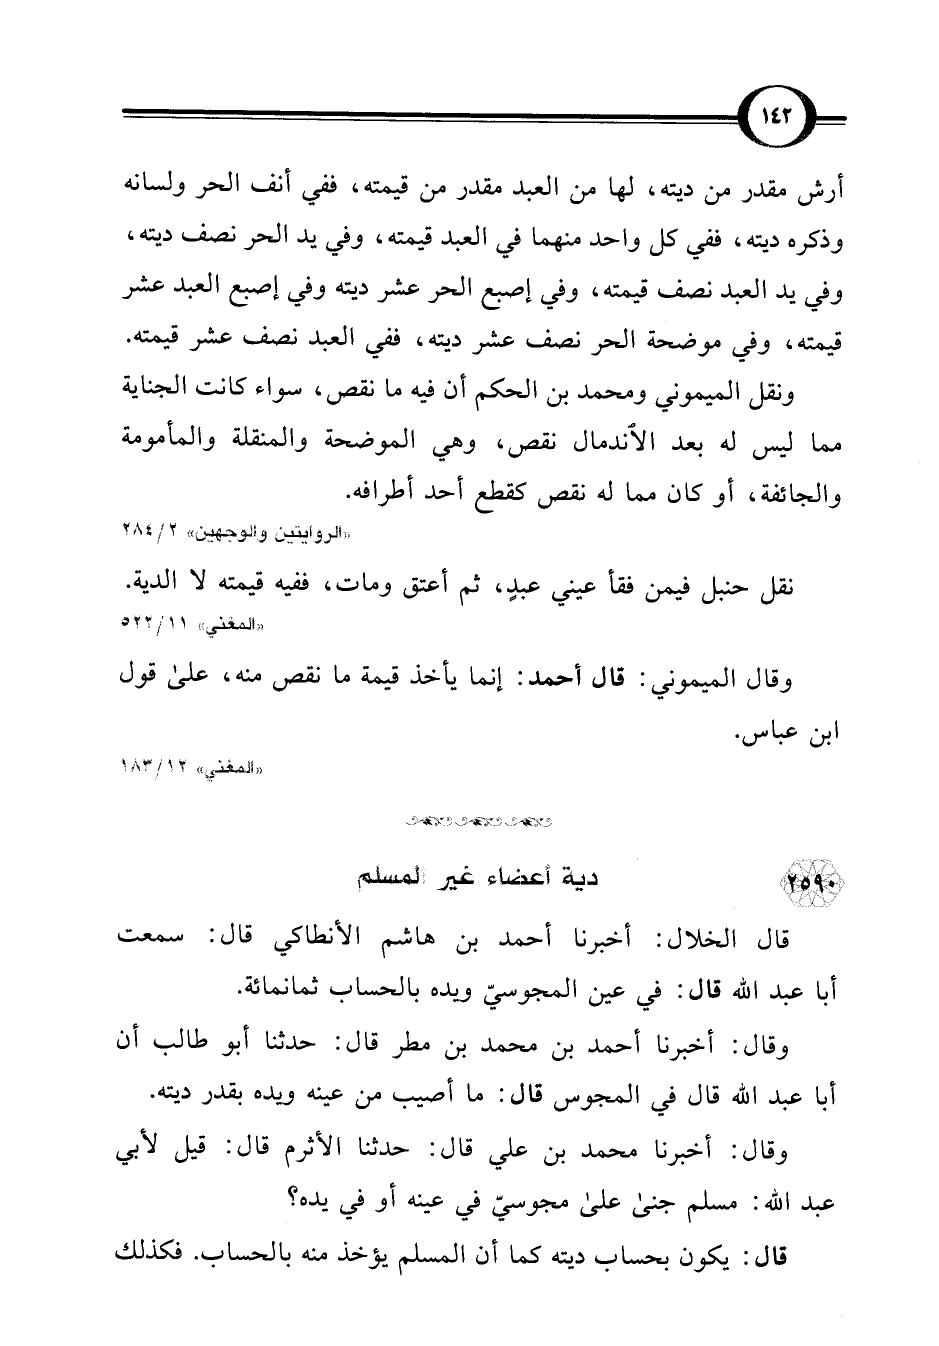 ١٤٢
أرش مقدر من ديته، لها من العبد مقدر من قيمته، ففي أنف الحر ولسانه
وذكره ديته، ففي كل واحد منهما في العبد قيمته، وفي يد الحر نصف ديته،
وفي يد العبد نصف قيمته، وفي إصبع الحر عشر ديته وفي إصبع العبد عشر
قيمته، وفي موضحة الحر نصف عشر ديته، ففي العبد نصف عشر قيمته.
ونقل الميموني ومحمد بن الحكم أن فيه ما نقص، سواء كانت الجناية
مما ليس له بعد الأندمال نقص، وهي الموضحة والمنقلة والمأمومة
والجائفة، أو كان مما له نقص كقطع أحد أطرافه.
«الروايتين والوجهين» ٢/ ٢٨٤
نقل حنبل فيمن فقأ عيني عبدٍ، ثم أعتق ومات، ففيه قيمته لا الدية.
«المغني» ١١/ ٥٢٢
وقال الميموني: قال أحمد: إنما يأخذ قيمة ما نقص منه، علىٰ قول
ابن عباس.
«المغني» ١٢/ ١٨٣
٢٥٩٠ دية أعضاء غير المسلم
قال الخلال: أخبرنا أحمد بن هاشم الأنطاكي قال: سمعت
أبا عبد الله قال: في عين المجوسيّ ويده بالحساب ثمانمائة.
وقال: أخبرنا أحمد بن محمد بن مطر قال: حدثنا أبو طالب أن
أبا عبد الله قال في المجوس قال: ما أصيب من عينه ويده بقدر ديته.
وقال: أخبرنا محمد بن علي قال: حدثنا الأثرم قال: قيل لأبي
عبد الله: مسلم جنىٰ علىٰ مجوسيّ في عينه أو في يده؟
قال: يكون بحساب ديته كما أن المسلم يؤخذ منه بالحساب. فكذلك